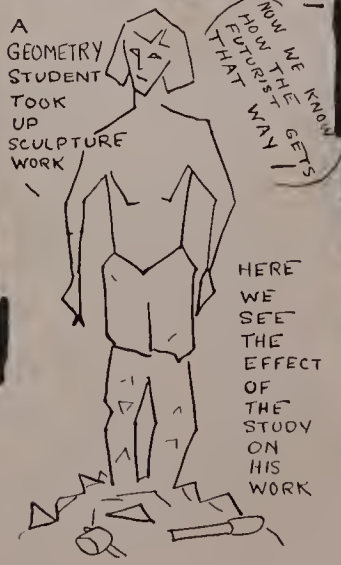 A
GEOMETRY
STUDENT
TOOK
UP
SCULPTURE
WORK
NOW WE KNOW
HOW THE
FUTURIST GETS
THAT WAY!
HERE
WE
SEE
THE
EFFECT
OF
THE
STUDY
ON
HIS
WORK